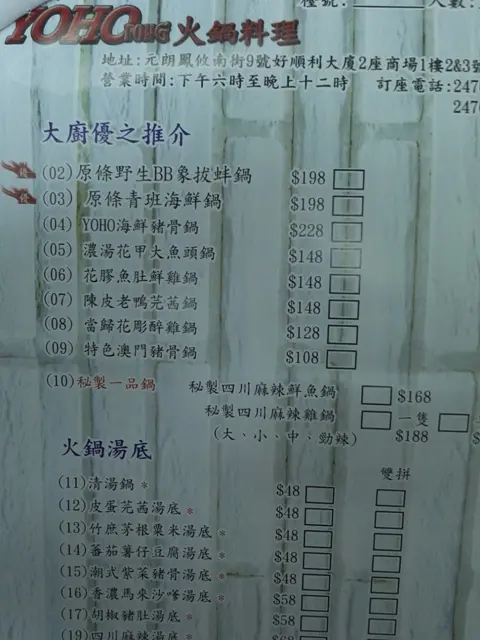 YOHO TONG 火鍋料理
地址:元朗鳳攸南街9號好順利大廈2座商場1樓2&3號
營業時間:下午六時至晚上十二時 訂座電話:247
247
大廚優之推介
(02)原條野生BB象拔蚌鍋 $198
(03) 原條青班海鮮鍋 $198
(04) YOHO海鮮豬骨鍋 $228
(05) 濃湯花甲大魚頭鍋 $148
(06) 花膠魚肚鮮雞鍋 $148
(07) 陳皮老鴨芫茜鍋 $148
(08) 當歸花彫醉雞鍋 $128
(09) 特色澳門豬骨鍋 $108
(10)秘製一品鍋 秘製四川麻辣鮮魚鍋 $168
秘製四川麻辣雞鍋 一隻
(大、小、中、勁辣) $188
火鍋湯底 雙拼
(11)清湯鍋* $48
(12)皮蛋芫茜湯底* $48
(13)竹庶茅根粟米湯底* $48
(14)蕃茄薯仔豆腐湯底* $48
(15)潮式紫菜豬骨湯底* $48
(16)香濃馬來沙嗲湯底* $58
(17)胡椒豬肚湯底* $58
(19)四川麻辣湯底*